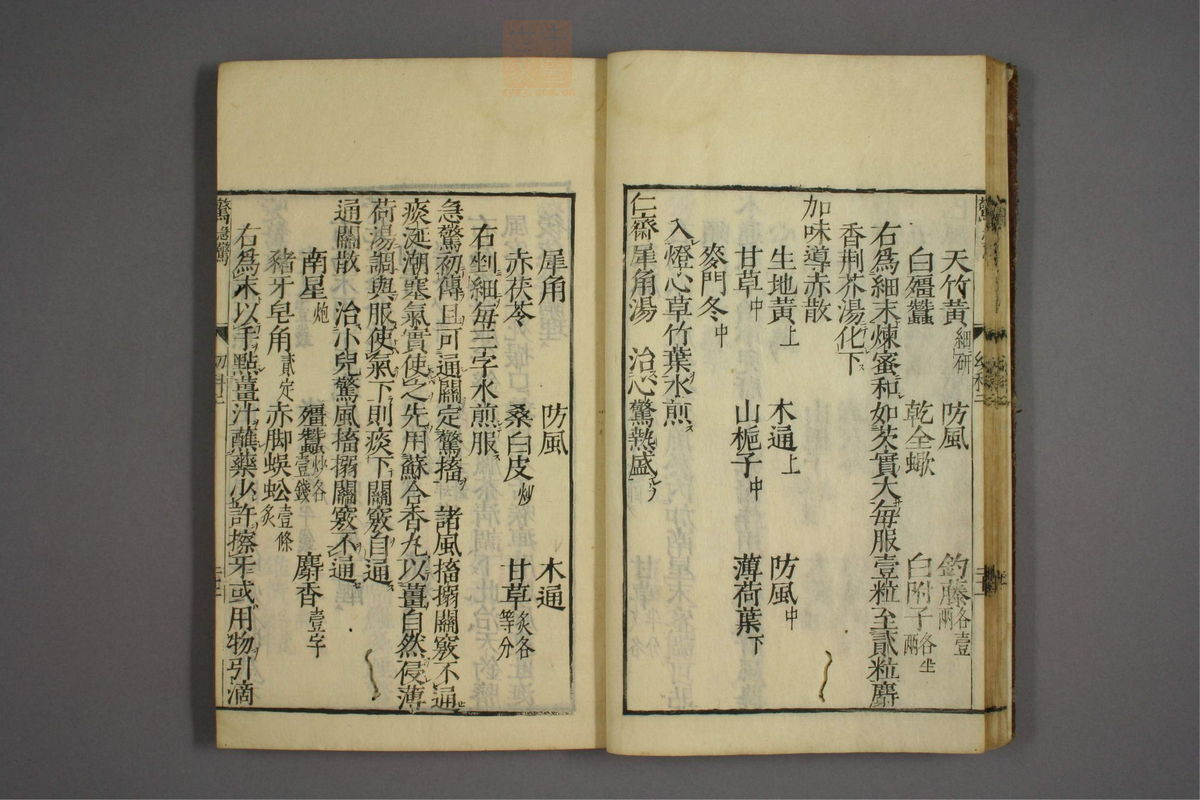 天竹黄細研　防風　釣藤各壹兩
白殭蠶　乾全蠍　白附子各半兩
右爲細末煉蜜和如芡實大毎服壹粒至貳粒麝
香荆芥湯化下
加味導赤散
生地黄上　木通上　防風中
甘草中　山梔子中　薄荷葉下
麥門冬中
入燈心草竹葉水煎
仁齋犀角湯　治心驚熱盛
犀角　防風　木通
赤茯苓　桑白皮炒　甘草炙各等分
右剉細毎三字水煎服
急驚初傳且可通關定驚搐　諸風搐搦關竅不通
痰涎潮塞氣實使之先用蘇合香丸以薑自然侵薄
荷湯調與服使氣下則痰下關竅自通
通關散　治小兒驚風搐搦關竅不通
南星炮　殭蠶炒各壹錢　麝香壹字
豬牙皂角貳定　赤脚蜈蚣壹條炙
右爲末以手點薑汁蘸藥少許擦牙或用物引滴